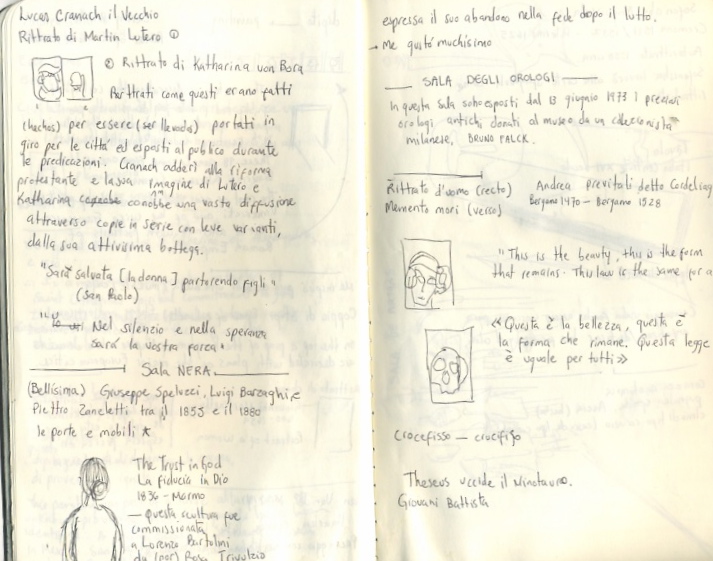 Lucas Cranach il Vecchio
Rittrato di Martin Lutero ①
② Rittrato di Katharina von Bora
Rittrati come questi erano fatti
1 2
(hechos) per essere (ser llevados) portati in
giro per le città ed esposti al publico durante
le predicazioni. Cranach aderì alla riforma
protestante e la sua imagine di Lutero e
Katharina conobbe una vasta diffusione
attraverso copie in serie con leve varianti,
dalla sua attivissima bottega.
"Sarà salvata [la donna] partorendo figli"
(San Paolo)
" Nel silenzio e nella speranza
sarà la vostra forza"
Sala NERA
(Bellisima) Giuseppe Speluzzi, Luigi Barzaghi e
Piettro Zancletti tra il 1855 e il 1880
le porte e mobili *
The Trust in God
La fiducia in Dio
1836 - Marmo
— questa scultura fue
commissionata
a Lorenzo Bartolini
da (por) Rosa Trivulzio
espressa il suo abandono nella fede dopo il lutto.
→ Me gustó muchísimo
SALA DEGLI OROLOGI
In questa sala sono esposti dal 13 giugno 1973 i preziosi
orologi antichi donati al museo da un collezionista
milanese, BRUNO FALCK.
Rittrato d'uomo (recto) Andrea previtali detto Cordeliag
Memento mori (verso) Bergamo 1470 - Bergamo 1528
"This is the beauty, this is the form
that remains. This law is the same for a
«Questa è la bellezza, questa è
la forma che rimane. Questa legge
è uguale per tutti»
Crocefisso — crucifijo
Theseus uccide il Minotauro.
Giovani Battista